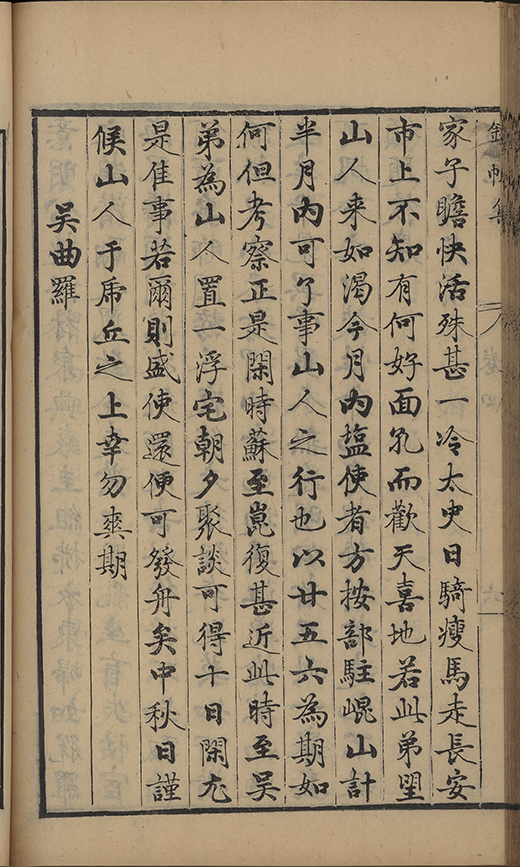 錦帆集
卷四
六
家子瞻快活殊甚一冷太史日騎瘦馬走長安
市上不知有何好面孔而歡天喜地若此弟望
山人来如渴今月內塩使者方按部駐崐山計
半月內可了事山人之行也以廿五六為期如
何但考察正是閑時蘇至崑復甚近此時至吴
弟為山人置一浮宅朝夕聚談可得十日閑尤
是佳事若爾則盛使還便可發舟矣中秋日謹
候山人于虎丘之上幸勿爽期
吴曲羅